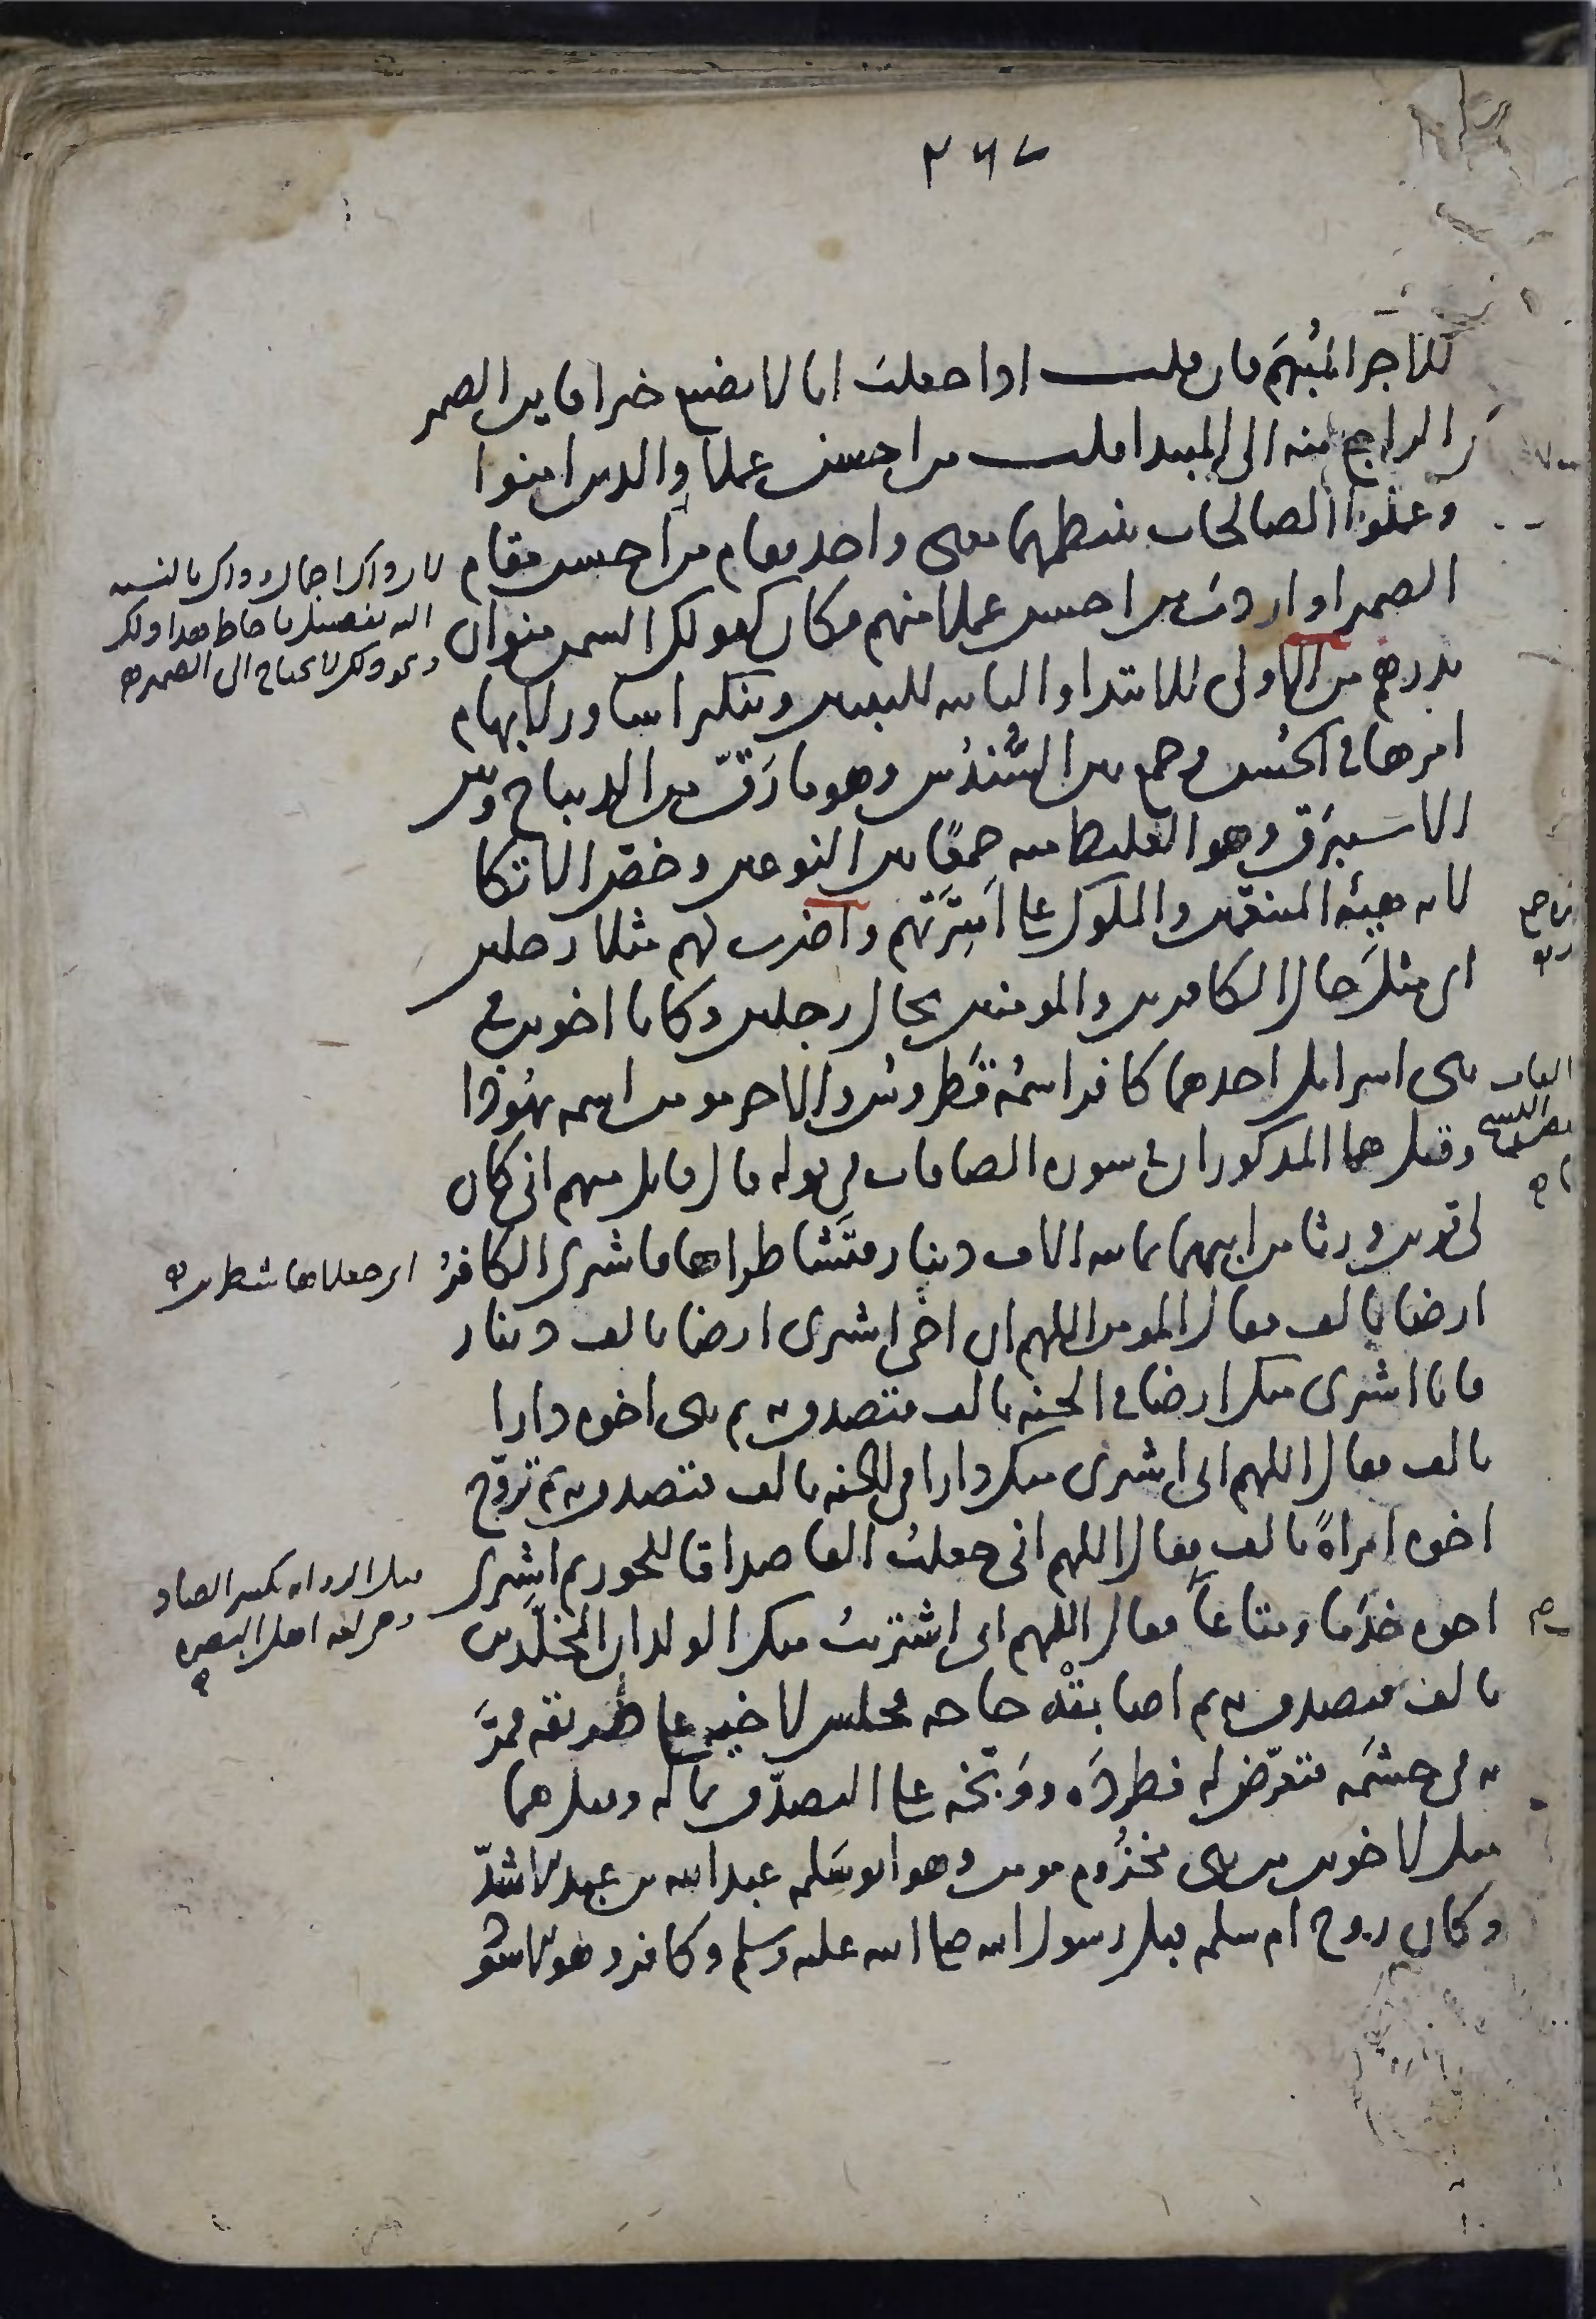 ٢٦٧
للاجر المبهم فان قلت اذا جعلت انا لا نضيع خبرا فاين الضمير
الراجع منه الى المبتدا قلت من احسن عملا والذين امنوا
وعملوا الصالحات ينتظمهما معنى واحد فقام من احسن مقام
الضمير او اردت من احسن عملا منهم فكان كقولك السمن منوان
بدرهم من الاولى للابتداء والثانية للتبيين وتنكير اساور لابهام
امرها في الحسن وجمع بين السُّندُس وهو ما رَقّ من الديباج وبين
الاستبرق وهو الغليظ منه جمعًا بين النوعين وخصّ الاتكا
لانه هيئة المنعمين والملوك على اسرّتهم واضرب لهم مثلا رجلين
اى مثل حال الكافرين والمومنين بحال رجلين وكانا اخوين في
بنى اسرايل احدهما كافر اسمُه قَطروس والاخر مومن اسمه يهُوذا
وقيل هما المذكوران في سورة الصافات في قوله قال قايل منهم انى كان
لى قرين ورثا من ابيهما ثمانية الاف دينار فتَشاطراها فاشترى الكافرُ
ارضا بالف فقال المومن اللهم ان اخى اشترى ارضا بالف دينار
فانا اشترى منك ارضا في الجنة بالف فتصدق به ثم بنى اخوه دارا
بالف فقال اللهم انى اشترى منك دارا في الجنة بالف فتصدق به ثم تزوّج
اخوه امراةً بالف فقال اللهم انى جعلتُ الفا صداقا للحور ثم اشترى
اخوه خدَما ومتاعاً فقال اللهم انى اشتريتُ منك الولدان المخلّدين
بالف فتصدق به ثم اصابتْه حاجة فجلس لاخيه على طريقه فمرَّ
به في حشَمه فتعرّض له فطردَه ووَبّخه على التصدّق بماله وقيل هما
مثل لاخوين من بنى مخزُوم مومن وهو ابو سَلمه عبد الله بن عبد الاشدّ
وكان زوج ام سلمه قبل رسول الله صلى الله عليه وسلم وكافر وهو الاسو
لان ذاك اجمال وذاك بالنسبة
اليه تفصيل
ونحو ذلك لا يحتاج الى الضمير
اى جعلاها شطرين
قيل الرواية بكسر الصاد